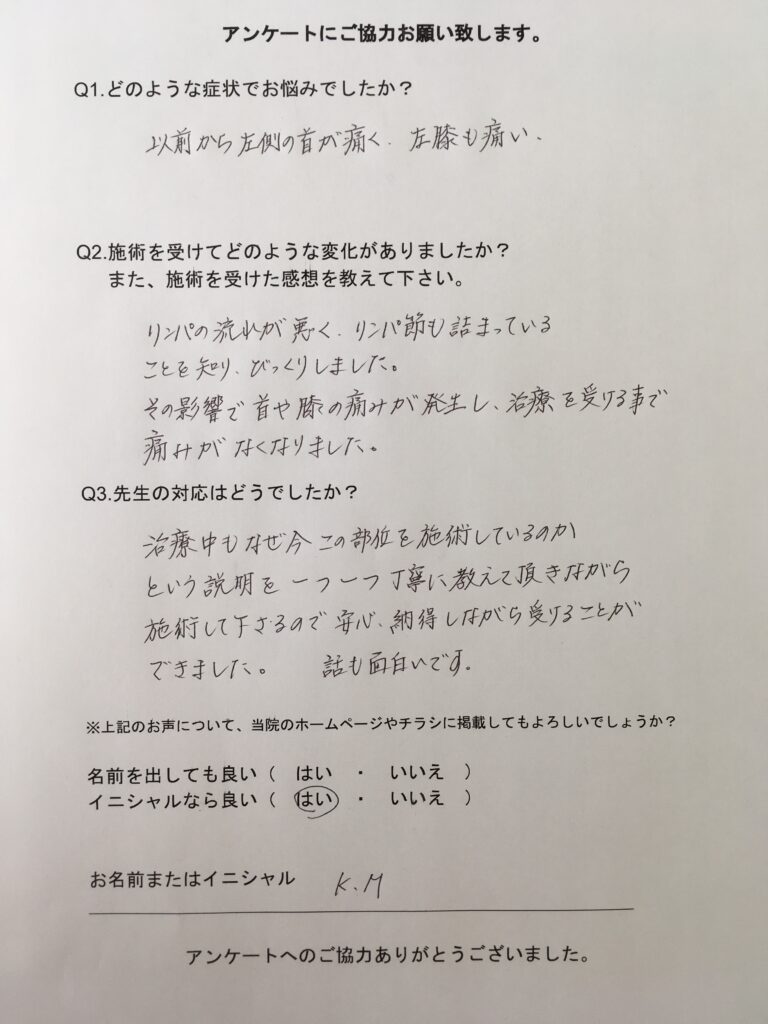 アンケートにご協力お願い致します。
Q1.どのような症状でお悩みでしたか？
以前から左側の首が痛く、左膝も痛い。
Q2.施術を受けてどのような変化がありましたか？
また、施術を受けた感想を教えて下さい。
リンパの流れが悪く、リンパ節も詰まっている
ことを知り、びっくりしました。
その影響で首や膝の痛みが発生し、治療を受ける事で
痛みがなくなりました。
Q3.先生の対応はどうでしたか？
治療中もなぜ今この部位を施術しているのか
という説明を一つ一つ丁寧に教えて頂きながら
施術して下さるので安心、納得しながら受けることが
できました。 話も面白いです。
※上記のお声について、当院のホームページやチラシに掲載してもよろしいでしょうか？
名前を出しても良い（ はい ・ いいえ ）
イニシャルなら良い（ はい ・ いいえ ）
お名前またはイニシャル K.M
アンケートへのご協力ありがとうございました。